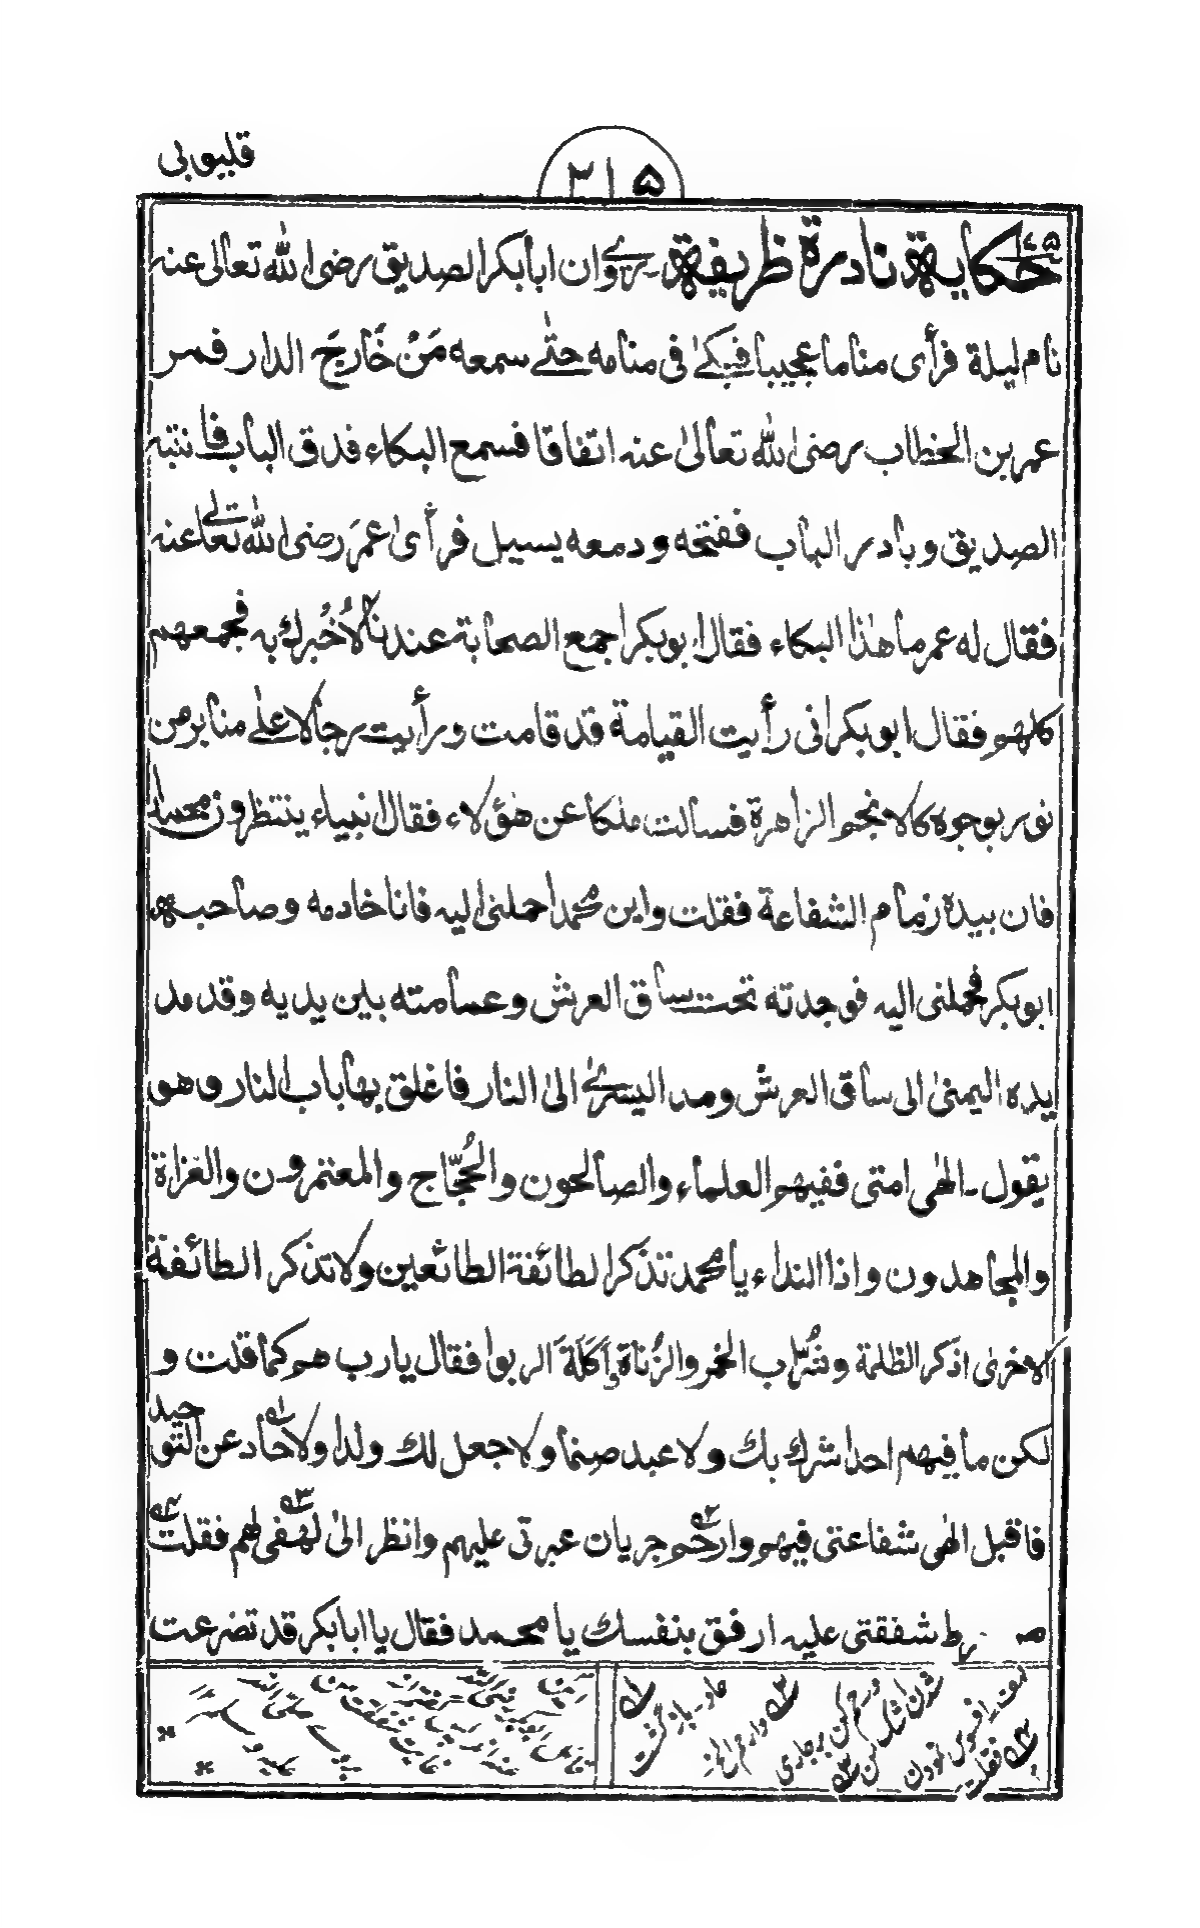 قليوبی
٢١٥
حكاية نادرة ظريفة۔ روے ان ابابكر الصديق رضى الله تعالى عنه
نام ليلة فرأى مناما عجيبا فبكىٰ فى منامه حتے سمعه مَنْ خَارِجَ الدار فمر
عمر بن الخطاب رضى الله تعالىٰ عنه اتفاقا فسمع البكاء فدق الباب فانتبه
الصديق وبادر الباب ففتحه ودمعه يسيل فرأىٰ عمَر رضى الله تعالے عنه
فقال له عمر ما هٰذا البكاء فقال ابوبكر اجمع الصحابة عندنا لاُخْبرك به فجمعهم
كلهم فقال ابوبكر انى رأيت القيامة قد قامت ورأيت رجالا علے منابر من
نور بوجوه كالانجم الزاهرة فسألت ملكا عن هٰؤلاء فقال انبياء ينتظرون محمدا
فان بيده زمام الشفاعة فقلت واين محمد احملنى اليه فانا خادمه وصاحبه
ابوبكر فحملنى اليه فوجدته تحت ساق العرش وعمامته بين يديه وقد مد
يده اليمنىٰ الى ساق العرش ومد اليسرےٰ الىٰ النار فاغلق بها باب النار وهو
يقول۔ الهٰى امتى ففيهم العلماء والصالحون والحُجّاج والمعتمرون والغزاة
والمجاهدون واذا النداء يا محمد تذكر الطائفة الطائعين ولا تذكر الطائفة
الاخرىٰ اذكر الظلمة وشُرّاب الخمر والزُناة وَاَكَلَةَ الربوا فقال يارب هم كما قلت و
لكن ما فيهم احد اشرك بك ولا عبد صنما ولا جعل لك ولدا ولا حاد عن التوحيد
فاقبل الهٰى شفاعتى فيهم وارحم جريان عبرتى عليهم وانظر الىٰ لهفى لهم فقلت
شفقتى عليه ارفق بنفسك يا محمد فقال يا ابابكر قد تضرعت